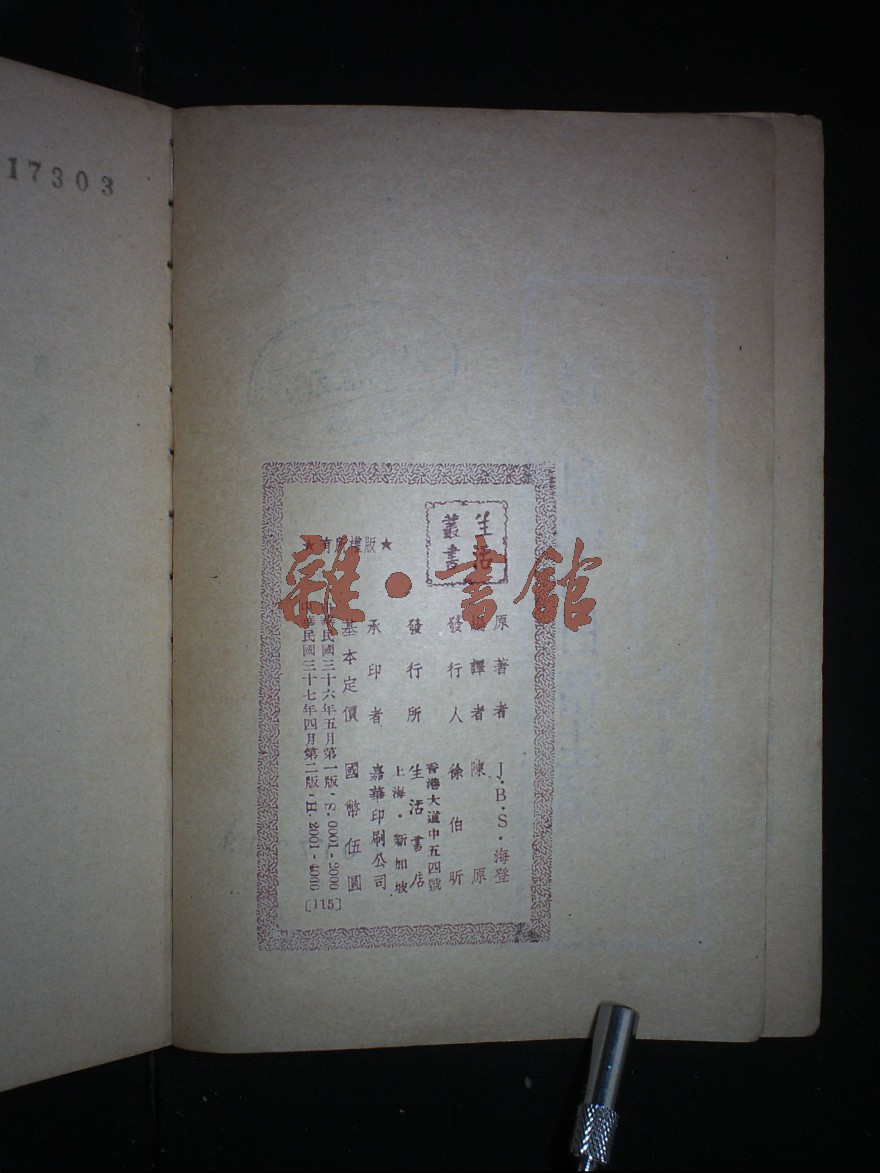 17303
生活
叢書
原著者 J.B.S.海登
編譯者 陳原
發行人 徐伯昕
發行所 生活書店
香港大道中五四號
上海・新加坡
承印者 嘉華印刷公司
基本定價 國幣伍圓
★版權所有★
中華民國三十六年五月第一版・S.0001-2000
中華民國三十七年四月第二版・H.2001-4000
[115]
雜・書館